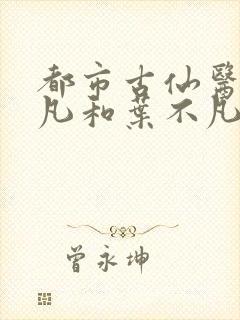 都市古仙醫
凡和葉不凡
曾永坤